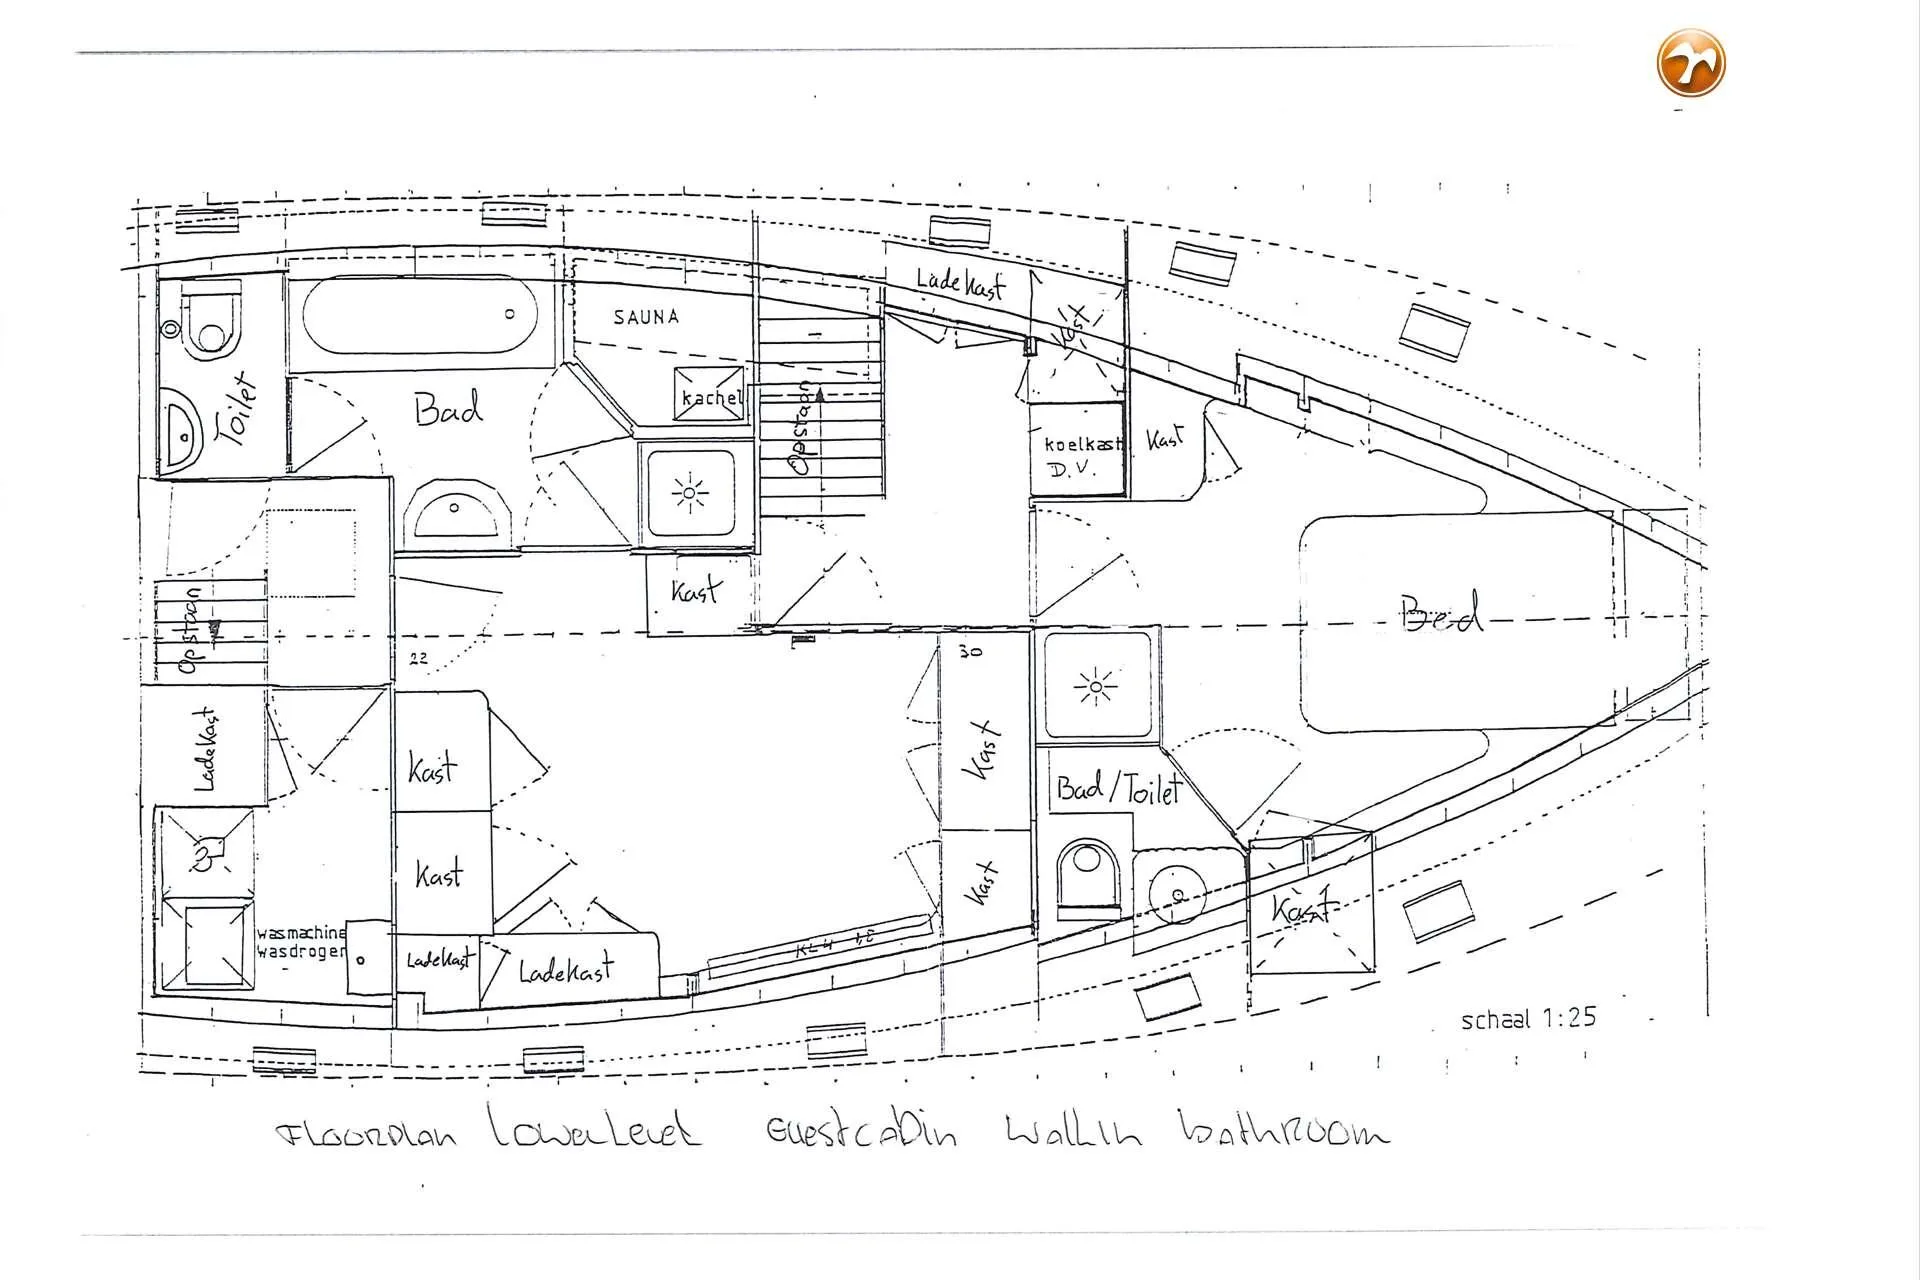 Ladekast
SAUNA
Toilet
Bad
kachel
Opstaan
Kast
koelkast
D.V.
Kast
Kast
Opstaan
Bed
22
30
Ladekast
Kast
Kast
Bad/Toilet
Kast
Kast
Kast
wasmachine
wasdroger
Ladekast
Ladekast
schaal 1:25
FLOORPLAN LOWERLEVEL GUESTCABIN WALKIN BATHROOM